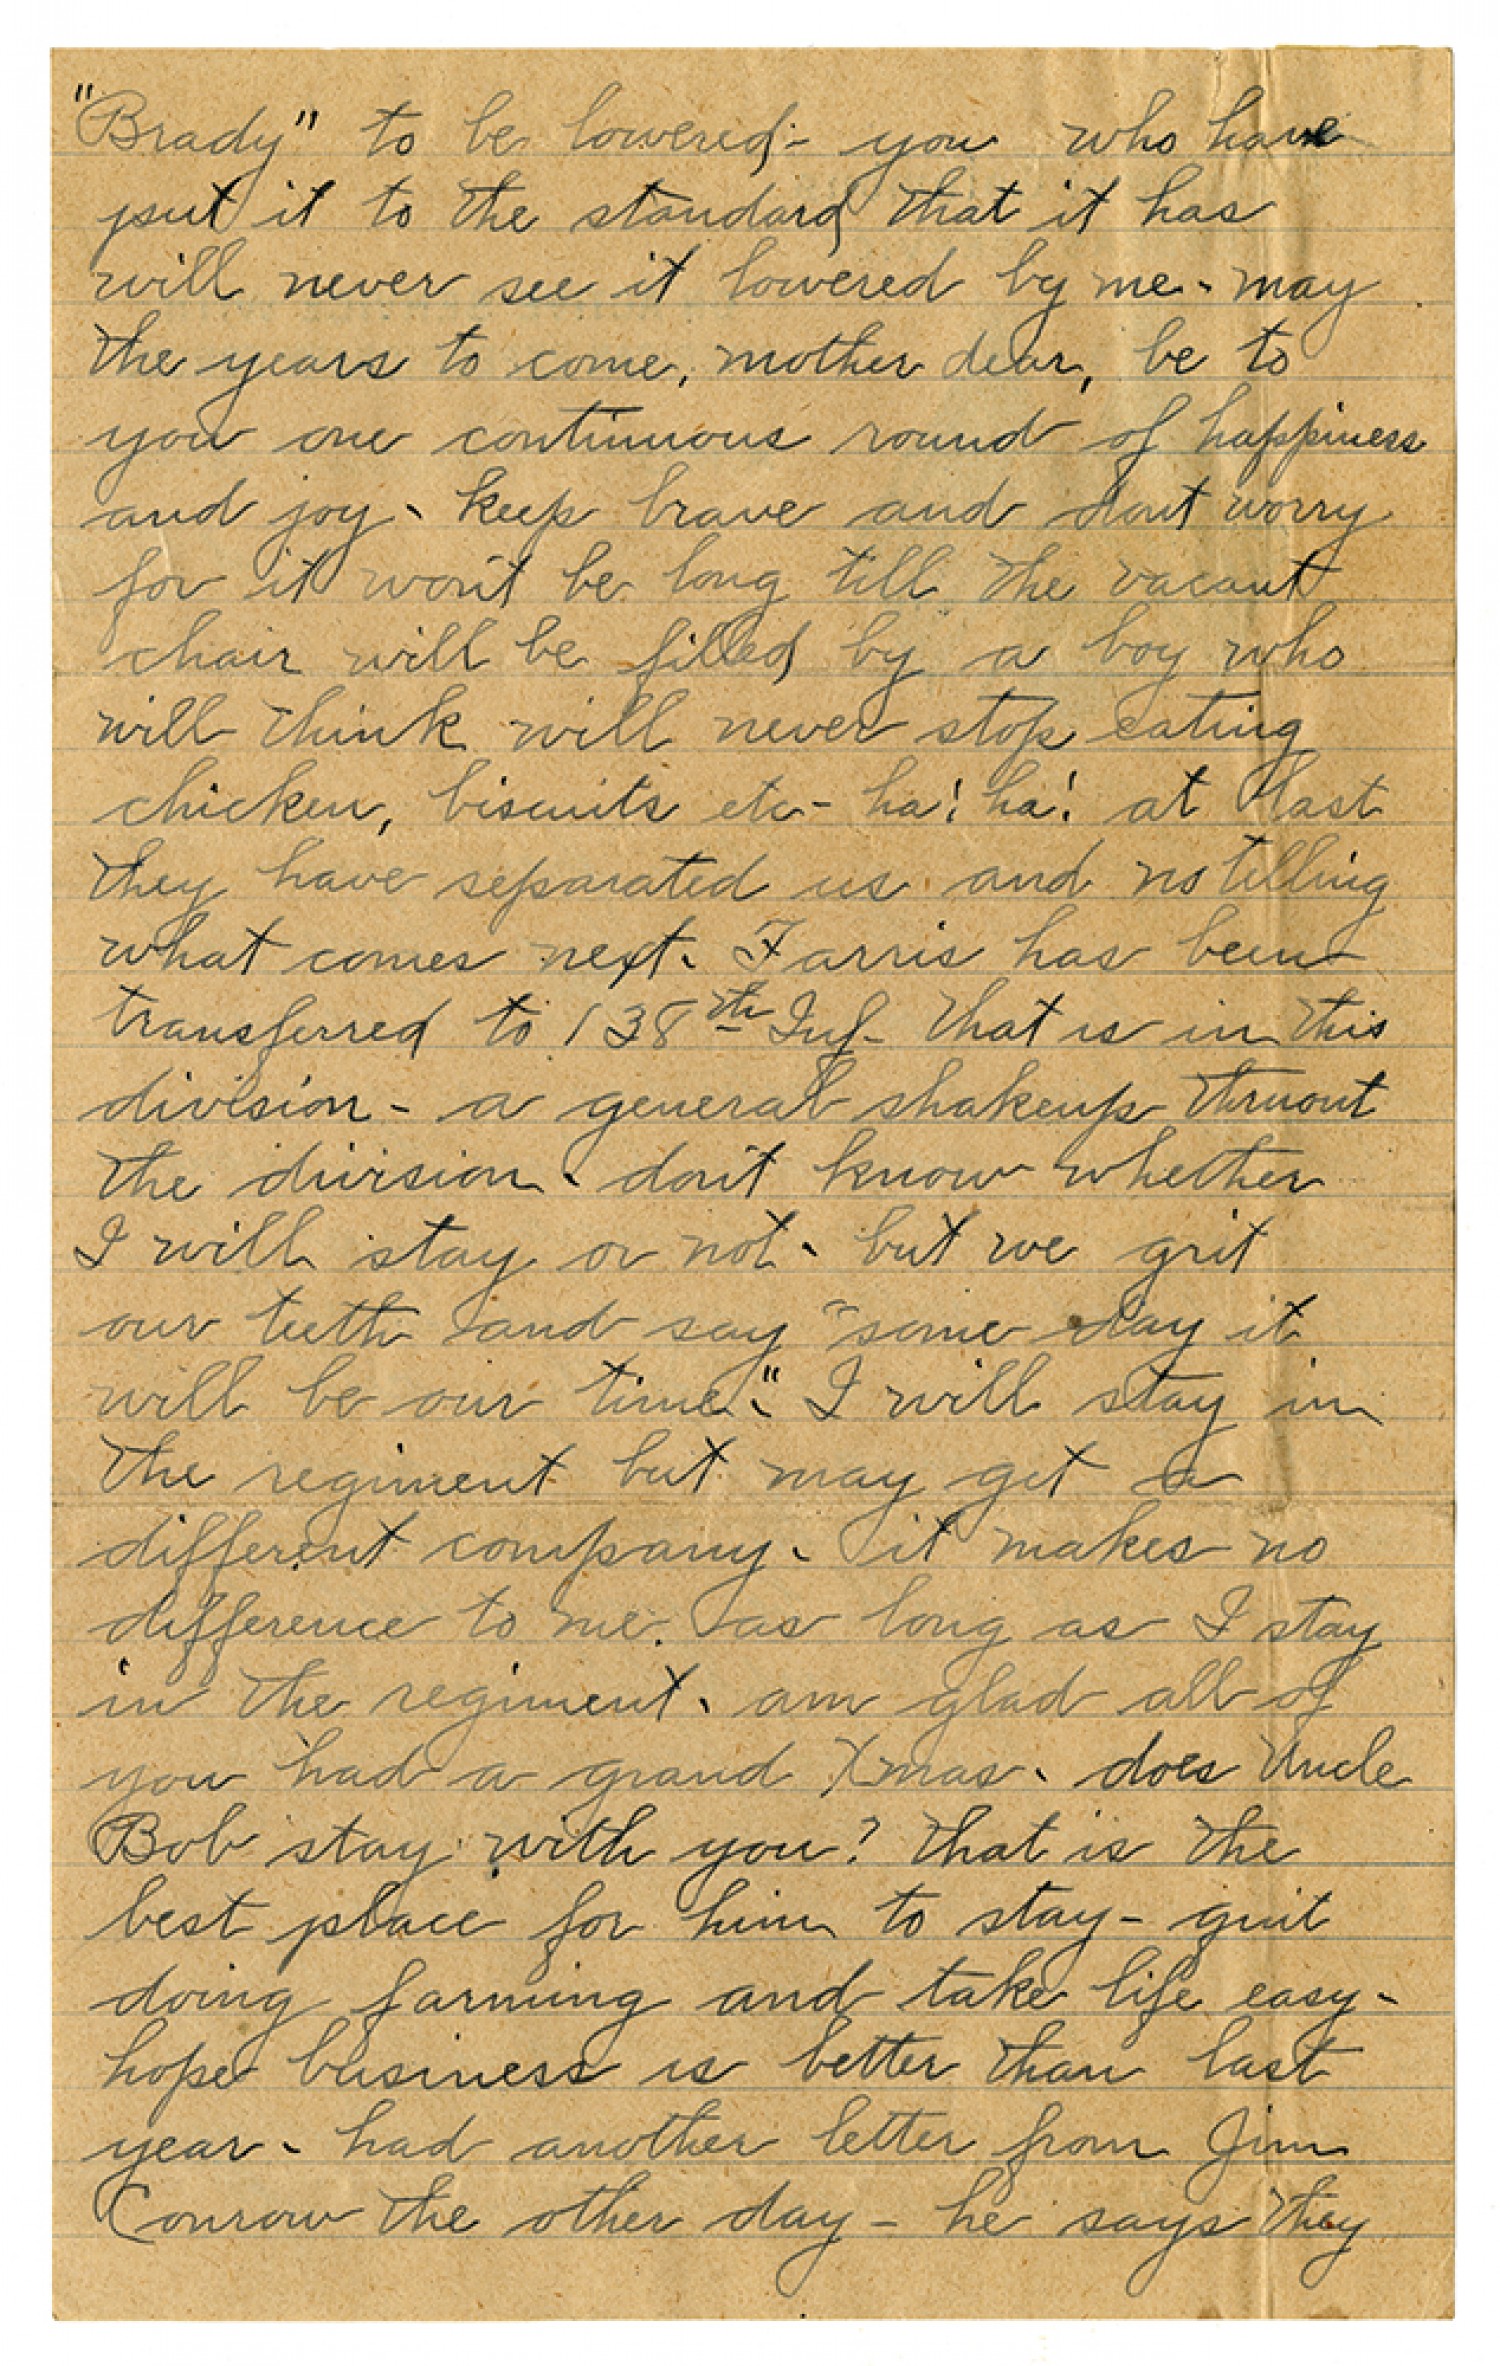 "Brady" to be lowered - you who have
put it to the standard that it has
will never see it lowered by me - may
the years to come, mother dear, be to
you one continuous round of happiness
and joy - keep brave and dont worry
for it won't be long till the vacant
chair will be filled by a boy who
will think will never stop eating
chicken, biscuits etc - ha! ha! at last
they have separated us and no telling
what comes next - Farris has been
transferred to 138th Inf - that is in this
division - a general shakeup thruout
the division - don't know whether
I will stay or not - but we grit
our teeth and say "some day it
will be our time." I will stay in
the regiment but may get a
different company - it makes no
difference to me. as long as I stay
in the regiment - am glad all of
you had a grand Xmas - does Uncle
Bob stay with you? that is the
best place for him to stay - quit
doing farming and take life easy -
hope business is better than last
year - had another letter from Jim
Conrow the other day - he says they